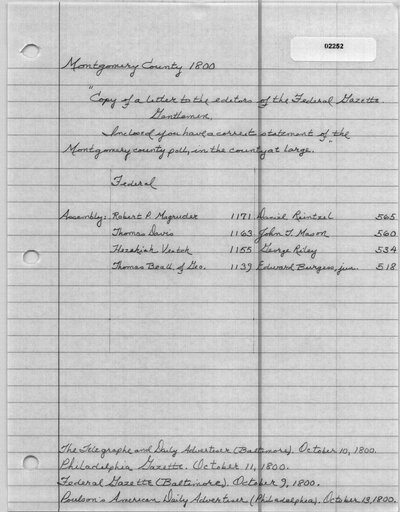 02252
Montgomery County 1800
"Copy of a letter to the editors of the Federal Gazette.
Gentlemen,
Inclosed you have a correct statement of the
Montgomery county poll, in the county at large."
Federal
Assembly: Robert P. Magruder 1171 Daniel Reintzel 565
Thomas Davis 1163 John T. Mason 560
Hezekiah Veatch 1155 George Riley 534
Thomas Beall of Geo. 1139 Edward Burgess, jun. 518
The Telegraphe and Daily Advertiser (Baltimore). October 10, 1800.
Philadelphia Gazette. October 11, 1800.
Federal Gazette (Baltimore). October 9, 1800.
Poulson's American Daily Advertiser (Philadelphia). October 13, 1800.